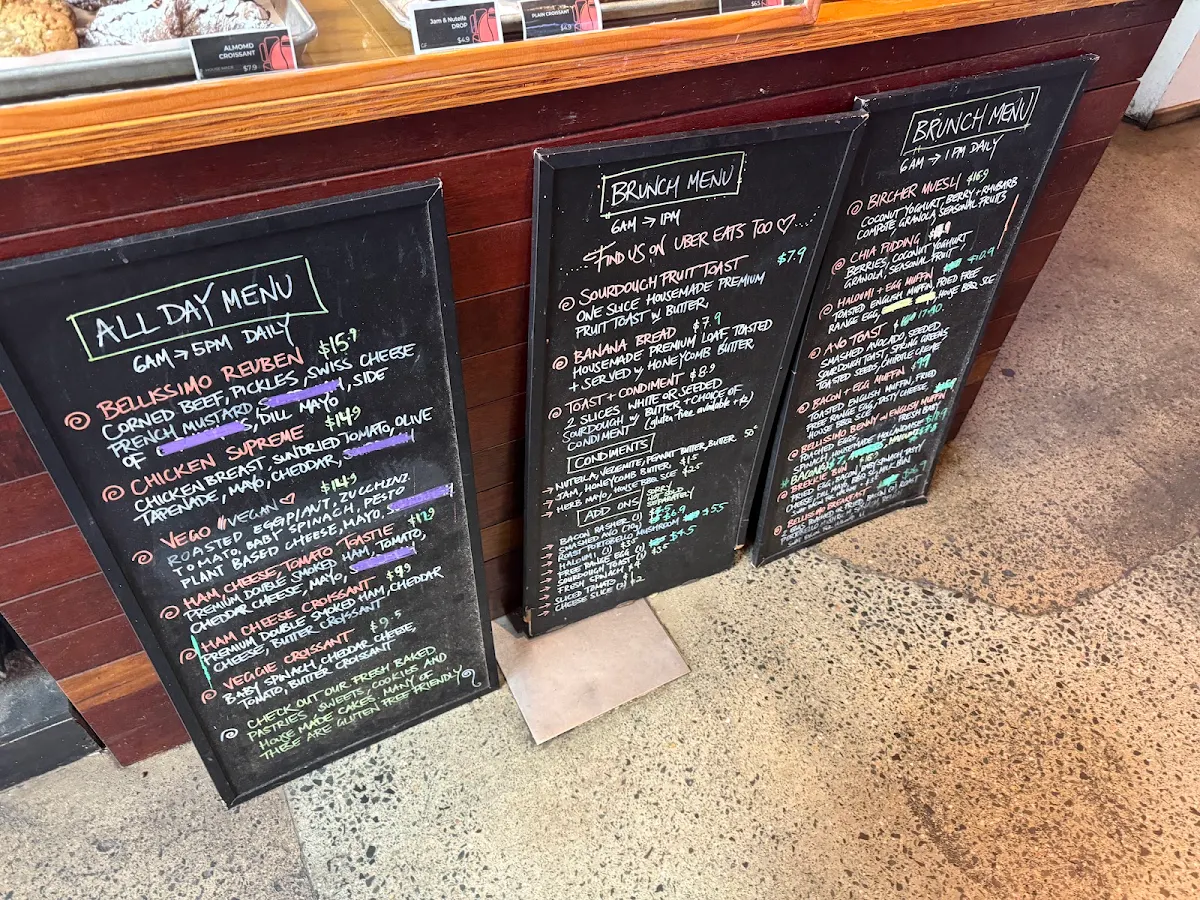 ALMOND
CROISSANT
$7.9
Jam & Nutella
DROP
GF
$4.9
PLAIN CROISSANT
$4.9
ALL DAY MENU
6AM → 5PM DAILY
BELLISSIMO REUBEN $15.9
CORNED BEEF, PICKLES, SWISS CHEESE
FRENCH MUSTARD, SIDE
OF DILL MAYO
CHICKEN SUPREME $14.9
CHICKEN BREAST, SUNDRIED TOMATO, OLIVE
TAPENADE, MAYO, CHEDDAR,
VEGO VEGAN ♡ $14.9
ROASTED EGGPLANT, ZUCCHINI
TOMATO, BABY SPINACH, PESTO
PLANT BASED CHEESE, MAYO,
HAM, CHEESE, TOMATO TOASTIE $12.9
PREMIUM DOUBLE SMOKED HAM, TOMATO,
CHEDDAR CHEESE, MAYO,
HAM CHEESE CROISSANT $9.9
PREMIUM DOUBLE SMOKED HAM, CHEDDAR
CHEESE, BUTTER CROISSANT
VEGGIE CROISSANT $9.5
BABY SPINACH, CHEDDAR CHEESE,
TOMATO, BUTTER CROISSANT
CHECK OUT OUR FRESH BAKED
PASTRIES, SWEETS, COOKIES AND
HOUSE MADE CAKES, MANY OF
THESE ARE GLUTEN FREE FRIENDLY
BRUNCH MENU
6AM → 1PM
FIND US ON UBER EATS TOO ♡
SOURDOUGH FRUIT TOAST $7.9
ONE SLICE HOUSEMADE PREMIUM
FRUIT TOAST W BUTTER.
BANANA BREAD $7.9
HOUSEMADE PREMIUM LOAF, TOASTED
+ SERVED W HONEYCOMB BUTTER
TOAST + CONDIMENT $8.9
2 SLICES, WHITE OR SEEDED
SOURDOUGH W BUTTER + CHOICE OF
CONDIMENT (gluten free available +$2)
CONDIMENTS
→ NUTELLA, VEGEMITE, PEANUT BUTTER, BUTTER. 50¢
JAM, HONEYCOMB BUTTER. $1.5
→ HERB MAYO, HOUSE BBQ SCE $2.5
ADD ONS SORRY NOT SOLD SEPARATELY
→ BACON RASHER (1)
→ SMASHED AVO (70g) $6.9
→ ROAST PORTOBELLO MUSHROOM $5.5
→ HALOUMI (1) $4.5
→ FREE RANGE EGG (1) $3.5
→ SOURDOUGH TOAST (1) $3.5
→ FRESH SPINACH $4
→ SLICED TOMATO $2
→ CHEESE SLICE (2) $2
BRUNCH MENU
6AM → 1PM DAILY
BIRCHER MUESLI $15.9
COCONUT YOGHURT, BERRY + RHUBARB
COMPOTE, GRANOLA, SEASONAL FRUITS
CHIA PUDDING
BERRIES, COCONUT YOGHURT
GRANOLA, SEASONAL FRUIT
HALOUMI + EGG MUFFIN $10.9
TOASTED ENGLISH MUFFIN, FRIED FREE
RANGE EGG, HOUSE BBQ SCE
AVO TOAST 17.40
SMASHED AVOCADO, SEEDED
SOURDOUGH TOAST, SPRING GREENS
TOASTED SEEDS, CHIPOTLE CREME
BACON + EGG MUFFIN
TOASTED ENGLISH MUFFIN, FRIED
FREE RANGE EGG, TASTY CHEESE,
HOUSE BBQ SCE
BELLISSIMO BENNY ON ENGLISH MUFFIN
POACHED EGGS, FRESH BABY
SPINACH, HOUSEMADE HOLLANDAISE
BREKKIE BUN
FRIED EGG, BACON, BABY SPINACH, TASTY
CHEESE, DILL MAYO, MILK BUN
BELLISSIMO BREAKFAST